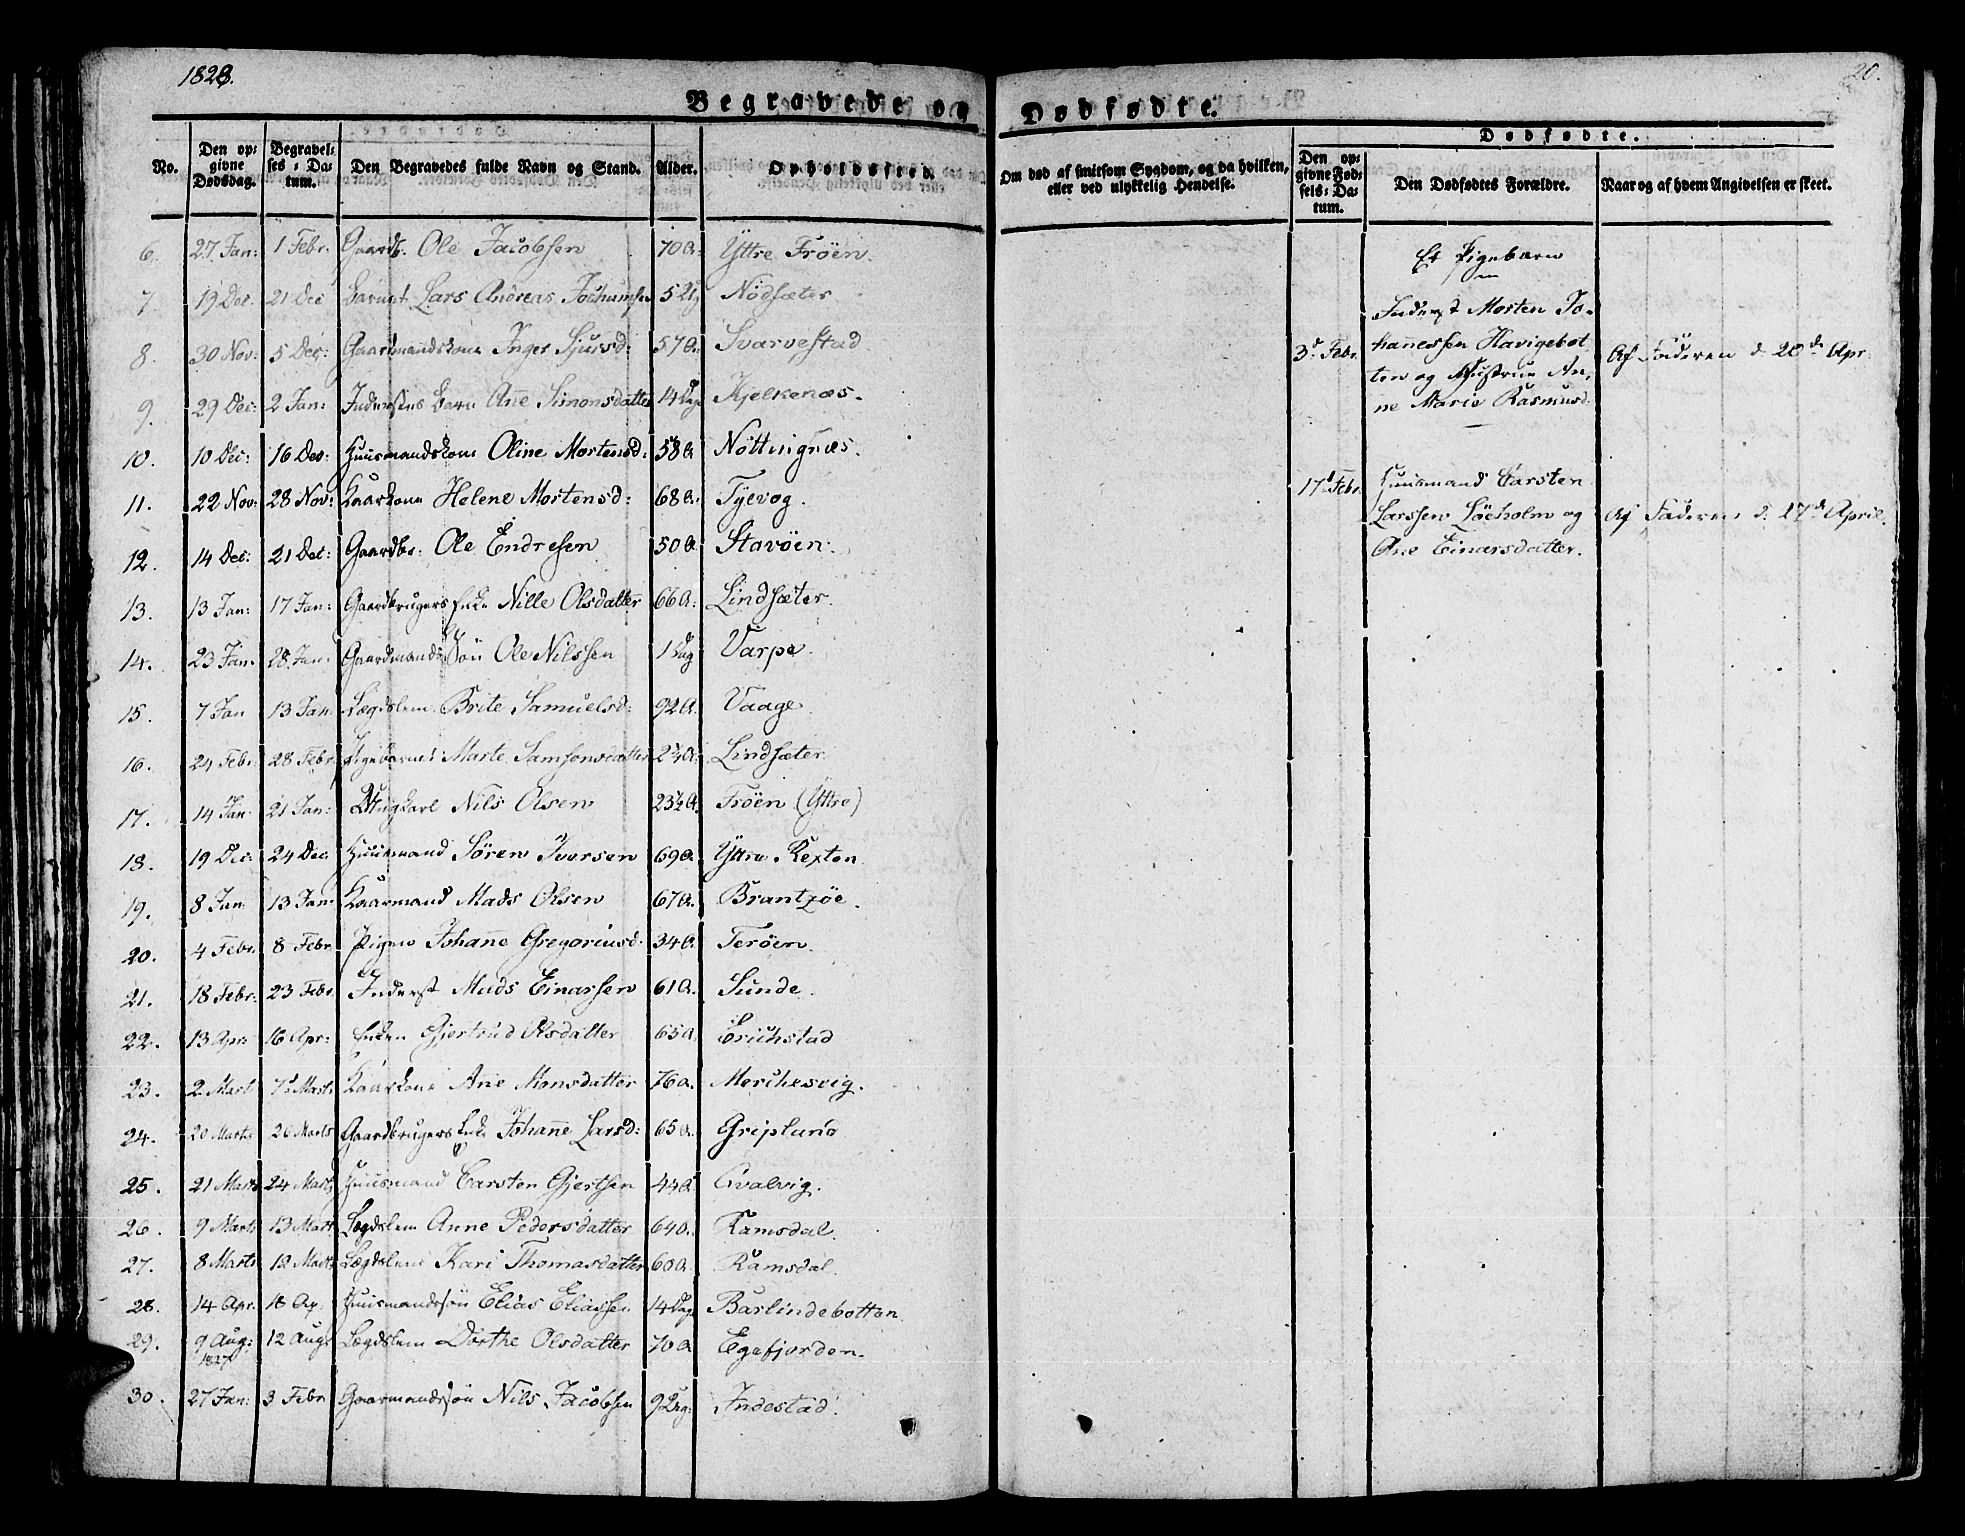 1828.
20.
Begravede og Dødfødte.
Dødfødte.
No.
Den opgivne Dødsdag.
Begravelses-Datum.
Den Begravedes fulde Navn og Stand.
Alder.
Opholdssted.
Om død af smitsom Sygdom, og da hvilken, eller ved ulykkelig Hendelse.
Den opgivne Fødsels-Datum.
Den Dødfødtes Forældre.
Naar og af hvem Angivelsen er skeet.
6. 27 Jan: 1 Febr. Gaardb. Ole Jacobsen 70 A: Yttre Frøen.
7. 19 Dec. 21 Dec Barnet Lars Andreas Jochumsen 5 Nødsæter
8. 30 Nov: 5 Dec: Gaardmandskone Inger Sjursd: 57 A: Svarvestad
9. 29 Dec: 2 Jan: Inderstens Barn Ane Simonsdatter 14 Dag Kjelkenæs.
10. 10 Dec: 16 Dec: Huusmandskone Oline Mortensd: 58 A Nøttingnæs.
11. 22 Nov: 28 Nov: Kaarkone Helene Mortensd: 68 A: Tyevog.
12. 14 Dec: 21 Dec: Gaardbr: Ole Endresen 50 A Stavøen.
13. 13 Jan: 17 Jan: Gaardbrugers Enke Nille Olsdatter 66 A: Lindsæter.
14. 23 Jan: 28. Jan: Gaardmands Søn Ole Nilssen 1 Dag Varpe.
15. 7 Jan 13 Jan Lægdslem Brite Samuelsd: 92 A. Vaage.
16. 24 Febr: 28 Febr. Pigebarnet Marte Samsonsdatter 2¼ A: Lindsæter.
17. 14 Jan 21 Jan: Ungkarl Nils Olsen 23½ A. Frøen (Yttre)
18. 19 Dec: 24 Dec. Huusmand Søren Iversen 69 A. Yttre Rexten.
19. 8 Jan 13 Jan: Kaarmand Mads Olsen 67 A. Brantzøe.
20. 4 Febr. 8 Febr. Pigen Johanne Gregoriusd. 34 A. Terøen.
21. 18 Febr: 23 Febr. Inderst Mads Einarsen 61 A. Sunde.
22. 13 Apr: 16 Apr: Enken Gjertrud Olsdatter 65 A Erichstad
23. 2 Mart 7 Marts Kaarkone Ane Monsdatter 76 A. Merchesvig.
24. 20 Marts 26 Marts Gaardbrugers Enke Johanne Larsd: 65 A. Gripland
25. 21 Marts 24 Marts Huusmand Carsten Gjertsen 44 A. Qvalvig.
26. 9 Marts 13 Mart Lægdslem Anne Pedersdatter 64 A. Ramsdal.
27. 8 Marts 12 Marts Lægdslem Kari Thomasdatter 60 A. Ramsdal.
28. 14 Apr. 18 Ap. Huusmandssøn Elias Eliassen 14 Dage Barlindebotten
29. 9 Aug: 1827 12 Aug: Lægdslem Dorthe Olsdatter 70 A Egefjorden.
30. 27 Jan: 3 Febr Gaarmandssøn Nils Jacobsen 9 Dag: Indestad.
Et Pigebarn
Inderst Morten Jo-
3d Febr. hanessen Havigebot
ten og Hustrue An,
ne Marie Rasmusd.
Af Faderen d. 20d Apr.
17d Febr. Huusmand Carsten
Larssen Løeholm og
Ane Einarsdatter.
Af Faderen d. 27d April.